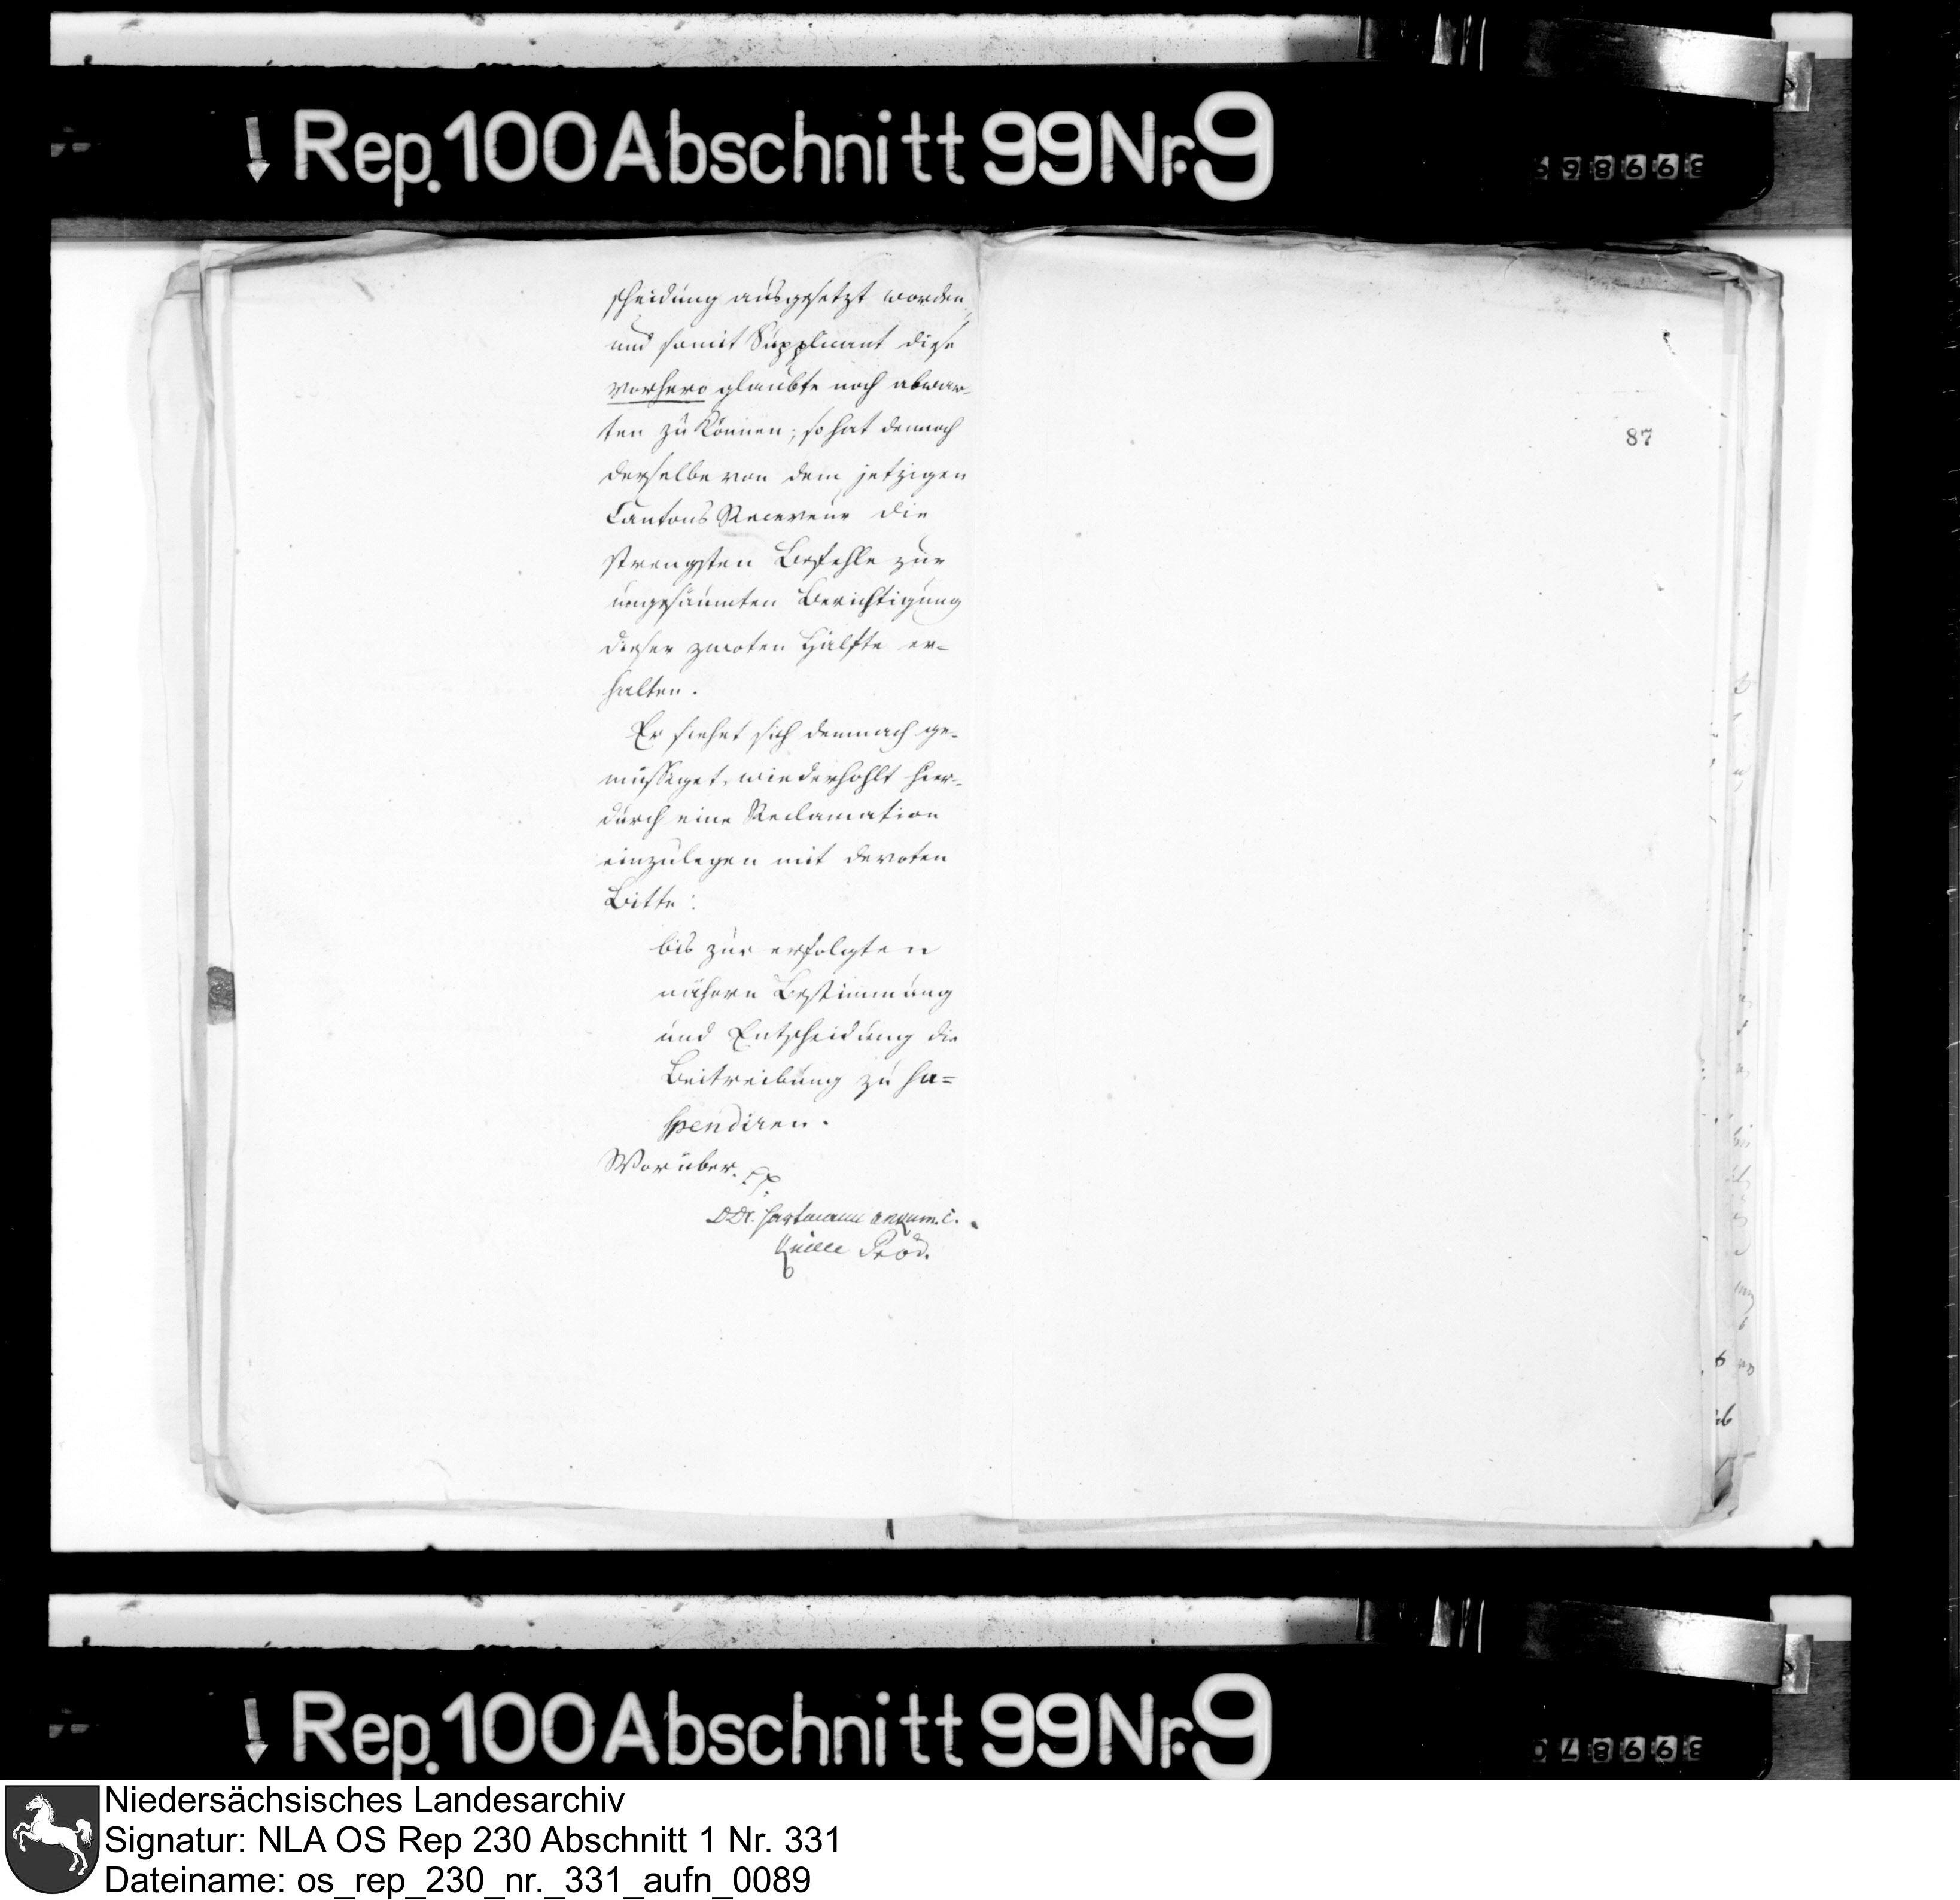 Rep. 100 Abschnitt 99 Nr. 9
scheidung ausgesetzt worden,
und somit Supplicant diese
vorhero glaubte noch abwar-
ten zu können; so hat dennoch
derselbe von dem jetzigen
Cantons Receveur die
strengsten Befehle zur
ungesäumten Berichtigung
dieser zwoten Hälfte er=
halten.
Er siehet sich demnach ge-
müssiget, wiederhohlt hier-
durch eine Reclamation
einzulegen mit devoten
Bitte:
bis zur erfolgten
nähern Bestimmung
und Entscheidung die
Beitreibung zu su=
spendiren.
Worüber. pp.
DDr. Hartmann
87
Rep. 100 Abschnitt 99 Nr. 9
Niedersächsisches Landesarchiv
Signatur: NLA OS Rep 230 Abschnitt 1 Nr. 331
Dateiname: os_rep_230_nr._331_aufn_0089